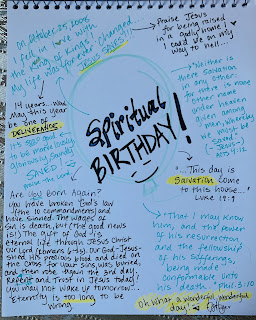 on October 25, 2008
I fell in love with
the King of Kings, changed...
My life was forever
JESUS SAVES!
Praise Jesus
for being raised
in a godly home to
lead me on my
way to Him...
"Neither is
there salvation
in any other:
for there is none
other name
under heaven
given among
men, whereby
we must be
saved."
-Jesus-
Acts 4:12
14 years... wow
May this year
be one of
DELIVERANCE
SAVED
Spiritual
BIRTHDAY!
"...This day is
Salvation come to
this house..."
Luke 19:9
Are You Born Again?
You have broken God's law
(the 10 commandments) and
have sinned. The wages of
sin is death, but (the good news
is!) The gift of God is
eternal life through Jesus Christ
our Lord (Romans 6:23). Our God-Jesus-
shed His precious blood and died on
the cross for your sins, was buried,
and then rose again the 3rd day.
Repent and Trust in Jesus today!
You may not wake up tomorrow...
Eternity is too long to be
wrong
"That I may know
him, and the power
of his resurrection
and the fellowship
of his sufferings,
being made
conformable unto
his death." Phil. 3:10
Oh what a wonderful, wonderful
day